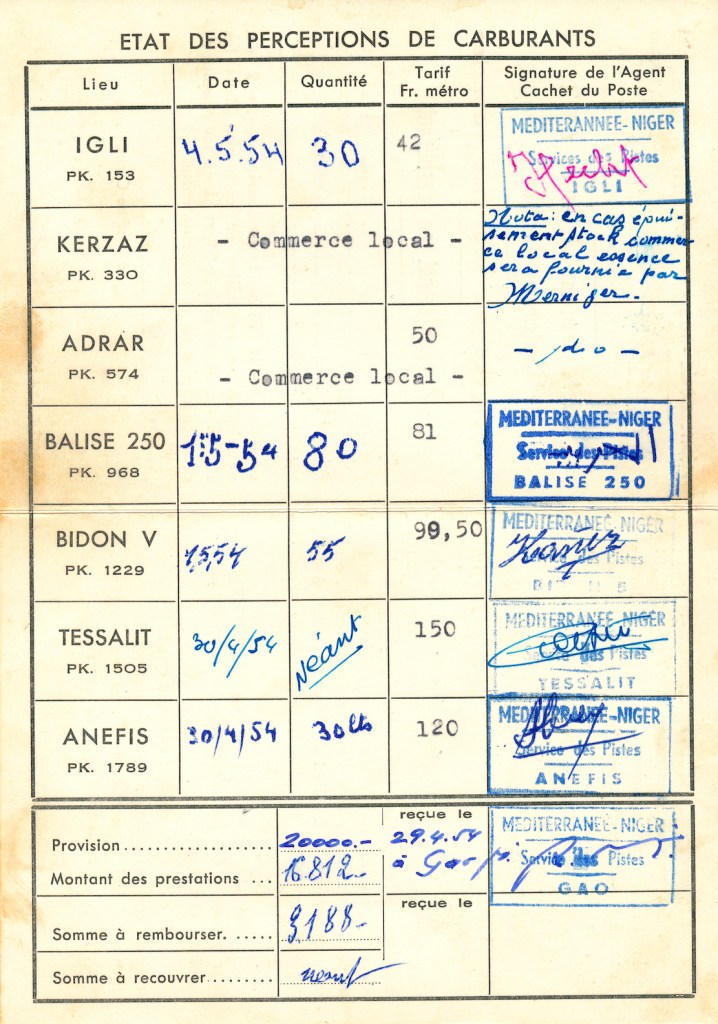 ETAT DES PERCEPTIONS DE CARBURANTS
Lieu Date Quantité Tarif Fr. métro Signature de l'Agent Cachet du Poste
IGLI PK. 153 4.5.54 30 42 MEDITERANNEE-NIGER Services des Pistes IGLI
KERZAZ PK. 330 - Commerce local -
Nota: en cas épui-
sement stock commer-
ce local essence
sera fournie par
Merniger.
ADRAR PK. 574 - Commerce local - 50 - do -
BALISE 250 PK. 968 1-5-54 80 81 MEDITERRANEE-NIGER Service des Pistes BALISE 250
BIDON V PK. 1229 1,5,54 55 99,50 MEDITERRANEE NIGER Service des Pistes
TESSALIT PK. 1505 30/4/54 Néant 150 MEDITERRANEE-NIGER Service des Pistes TESSALIT
ANEFIS PK. 1789 30/4/54 30 lts 120 MEDITERRANEE-NIGER Service des Pistes ANEFIS
Provision 20000.- reçue le 29.4.54 à Gao MEDITERRANEE-NIGER Service des Pistes GAO
Montant des prestations ... 16.812-
Somme à rembourser. ..... 3188- reçue le
Somme à recouvrer......... néant